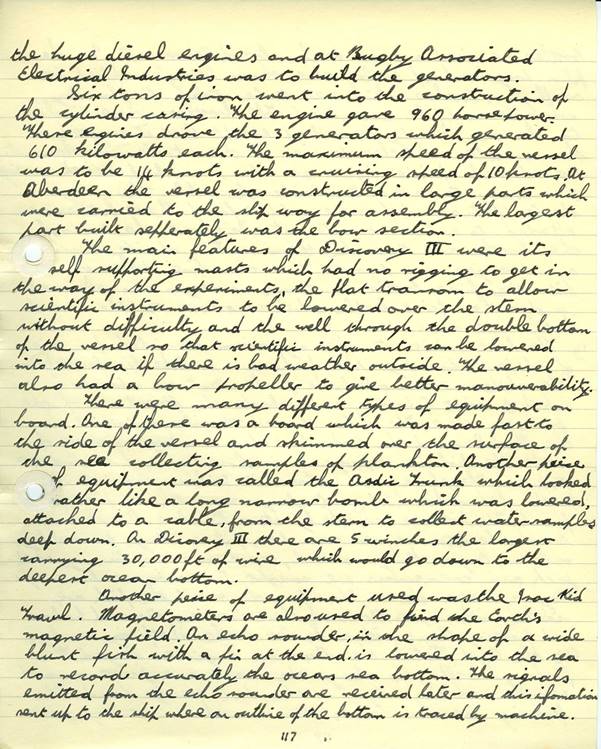 the huge diesel engines and at Bugby Associated
Electrical Industries was to build the generators.
Six tons of iron went into the construction of
the cylinder casing. The engine gave 960 horsepower.
There engines drove the 3 generators which generated
610 kilowatts each. The maximum speed of the vessel
was to be 14 knots with a cruising speed of 10 knots. At
Aberdeen the vessel was constructed in large parts which
were carried to the slip way for assembly. The largest
part built sepperately was the bow section.
The main features of Discovery III were its
self supporting masts which had no rigging to get in
the way of the experiments, the flat transom to allow
scientific instruments to be lowered over the stern
without difficulty and the well through the double bottom
of the vessel so that scientific instruments can be lowered
into the sea if there is bad weather outside. The vessel
also had a bow propeller to give better manouverability.
There were many different types of equipment on
board. One of there was a board which was made fast to
the side of the vessel and skimmed over the surface of
the sea collecting samples of plankton. Another peice
of equipment was called the Asdic Trunk which looked
rather like a long narrow bomb which was lowered,
attached to a cable, from the stern to collect water samples
deep down. On Dicovery III there are 5 winches the largest
carrying 30,000 ft of wire which would go down to the
deepest ocean bottom.
Another peise of equipment used was the Isac Kid
Trawl. Magnetometers are also used to find the Earth's
magnetic field. An echo sounder, in the shape of a wide
blunt fish with a fin at the end is lowered into the sea
to record accurately the ocears sea bottom. The signals
emitted from the echo sounder are received later and this ifomation
sent up to the ship where an outline of the bottom is traced by machine.
117